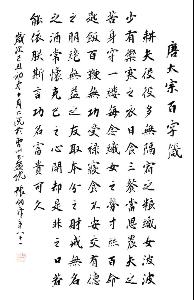 唐太宗百字箴
耕夫役役多無隔宿之糧織女波波
少有禦寒之衣日食三餐當思農夫之
苦身穿一縷每念織女之勞寸絲百命
匙飯百鞭無功受祿寢食不安交有德
之朋絕無益之友取本分之財戒無名
之酒常懷克己之心閉却是非之口若
能依朕斯言功名富貴可久
歲次己丑初冬十月 於 年八十二